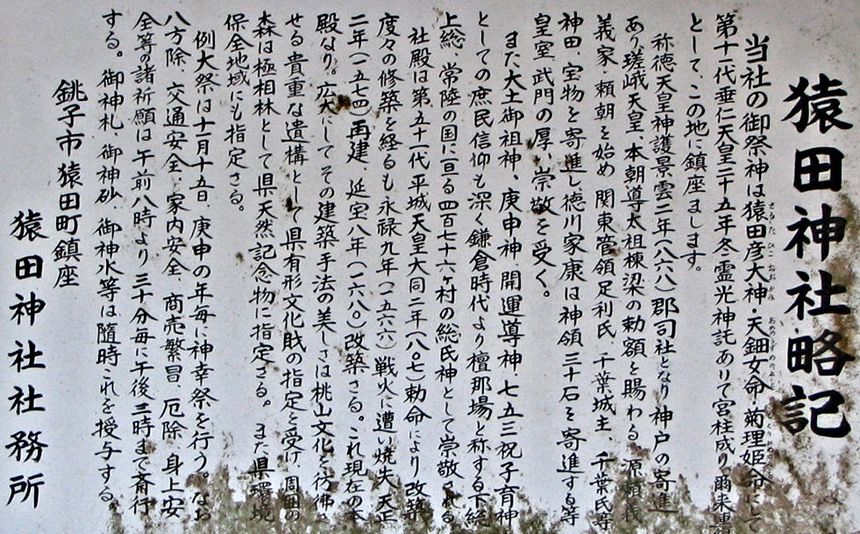 猿田神社略記
当社の御祭神は猿田彦大神・天鈿女命・菊理姫命にして
第十一代垂仁天皇二十五年冬霊光神託ありて宮柱成り爾来
として、この地に鎮座まします。
称徳天皇神護景雲二年(八六八)郡司社となり神戸の寄進
あり、嵯峨天皇・本朝導太祖棟梁の勅額を賜わる。源頼義
義家・頼朝を始め関東管領足利氏、千葉城主、千葉氏等
神田、宝物を寄進し、徳川家康は神領三十石を寄進する等
皇室、武門の厚い崇敬を受く。
また大土御祖神、庚申神、開運導神、七五三祝子育神
としての庶民信仰も深く鎌倉時代より檀那場と称する下総
上総、常陸の国に亘る四百七十六ヶ村の総氏神として崇敬される
社殿は第五十一代平城天皇大同二年(八〇七)勅命により改築
度々の修築を経るも永禄九年(一五六六)戦火に遭い焼失、天正
二年(一五七四)再建、延宝八年(一六八〇)改築さる。これ現在の本
殿なり。広大にしてその建築手法の美しさは桃山文化を彷彿
せる貴重な遺構として県有形文化財の指定を受け、周囲の
森は極相林として県天然記念物に指定さる。また県環境
保全地域にも指定さる。
例大祭は十一月十五日、庚申の年毎に神幸祭を行う。なお
八方除、交通安全、家内安全、商売繁昌、厄除、身上安
全等の諸祈願は午前八時より三十分毎に午後三時まで斎行
する。御神札、御神砂、御神水等は随時これを授与する。
銚子市猿田町鎮座
猿田神社社務所